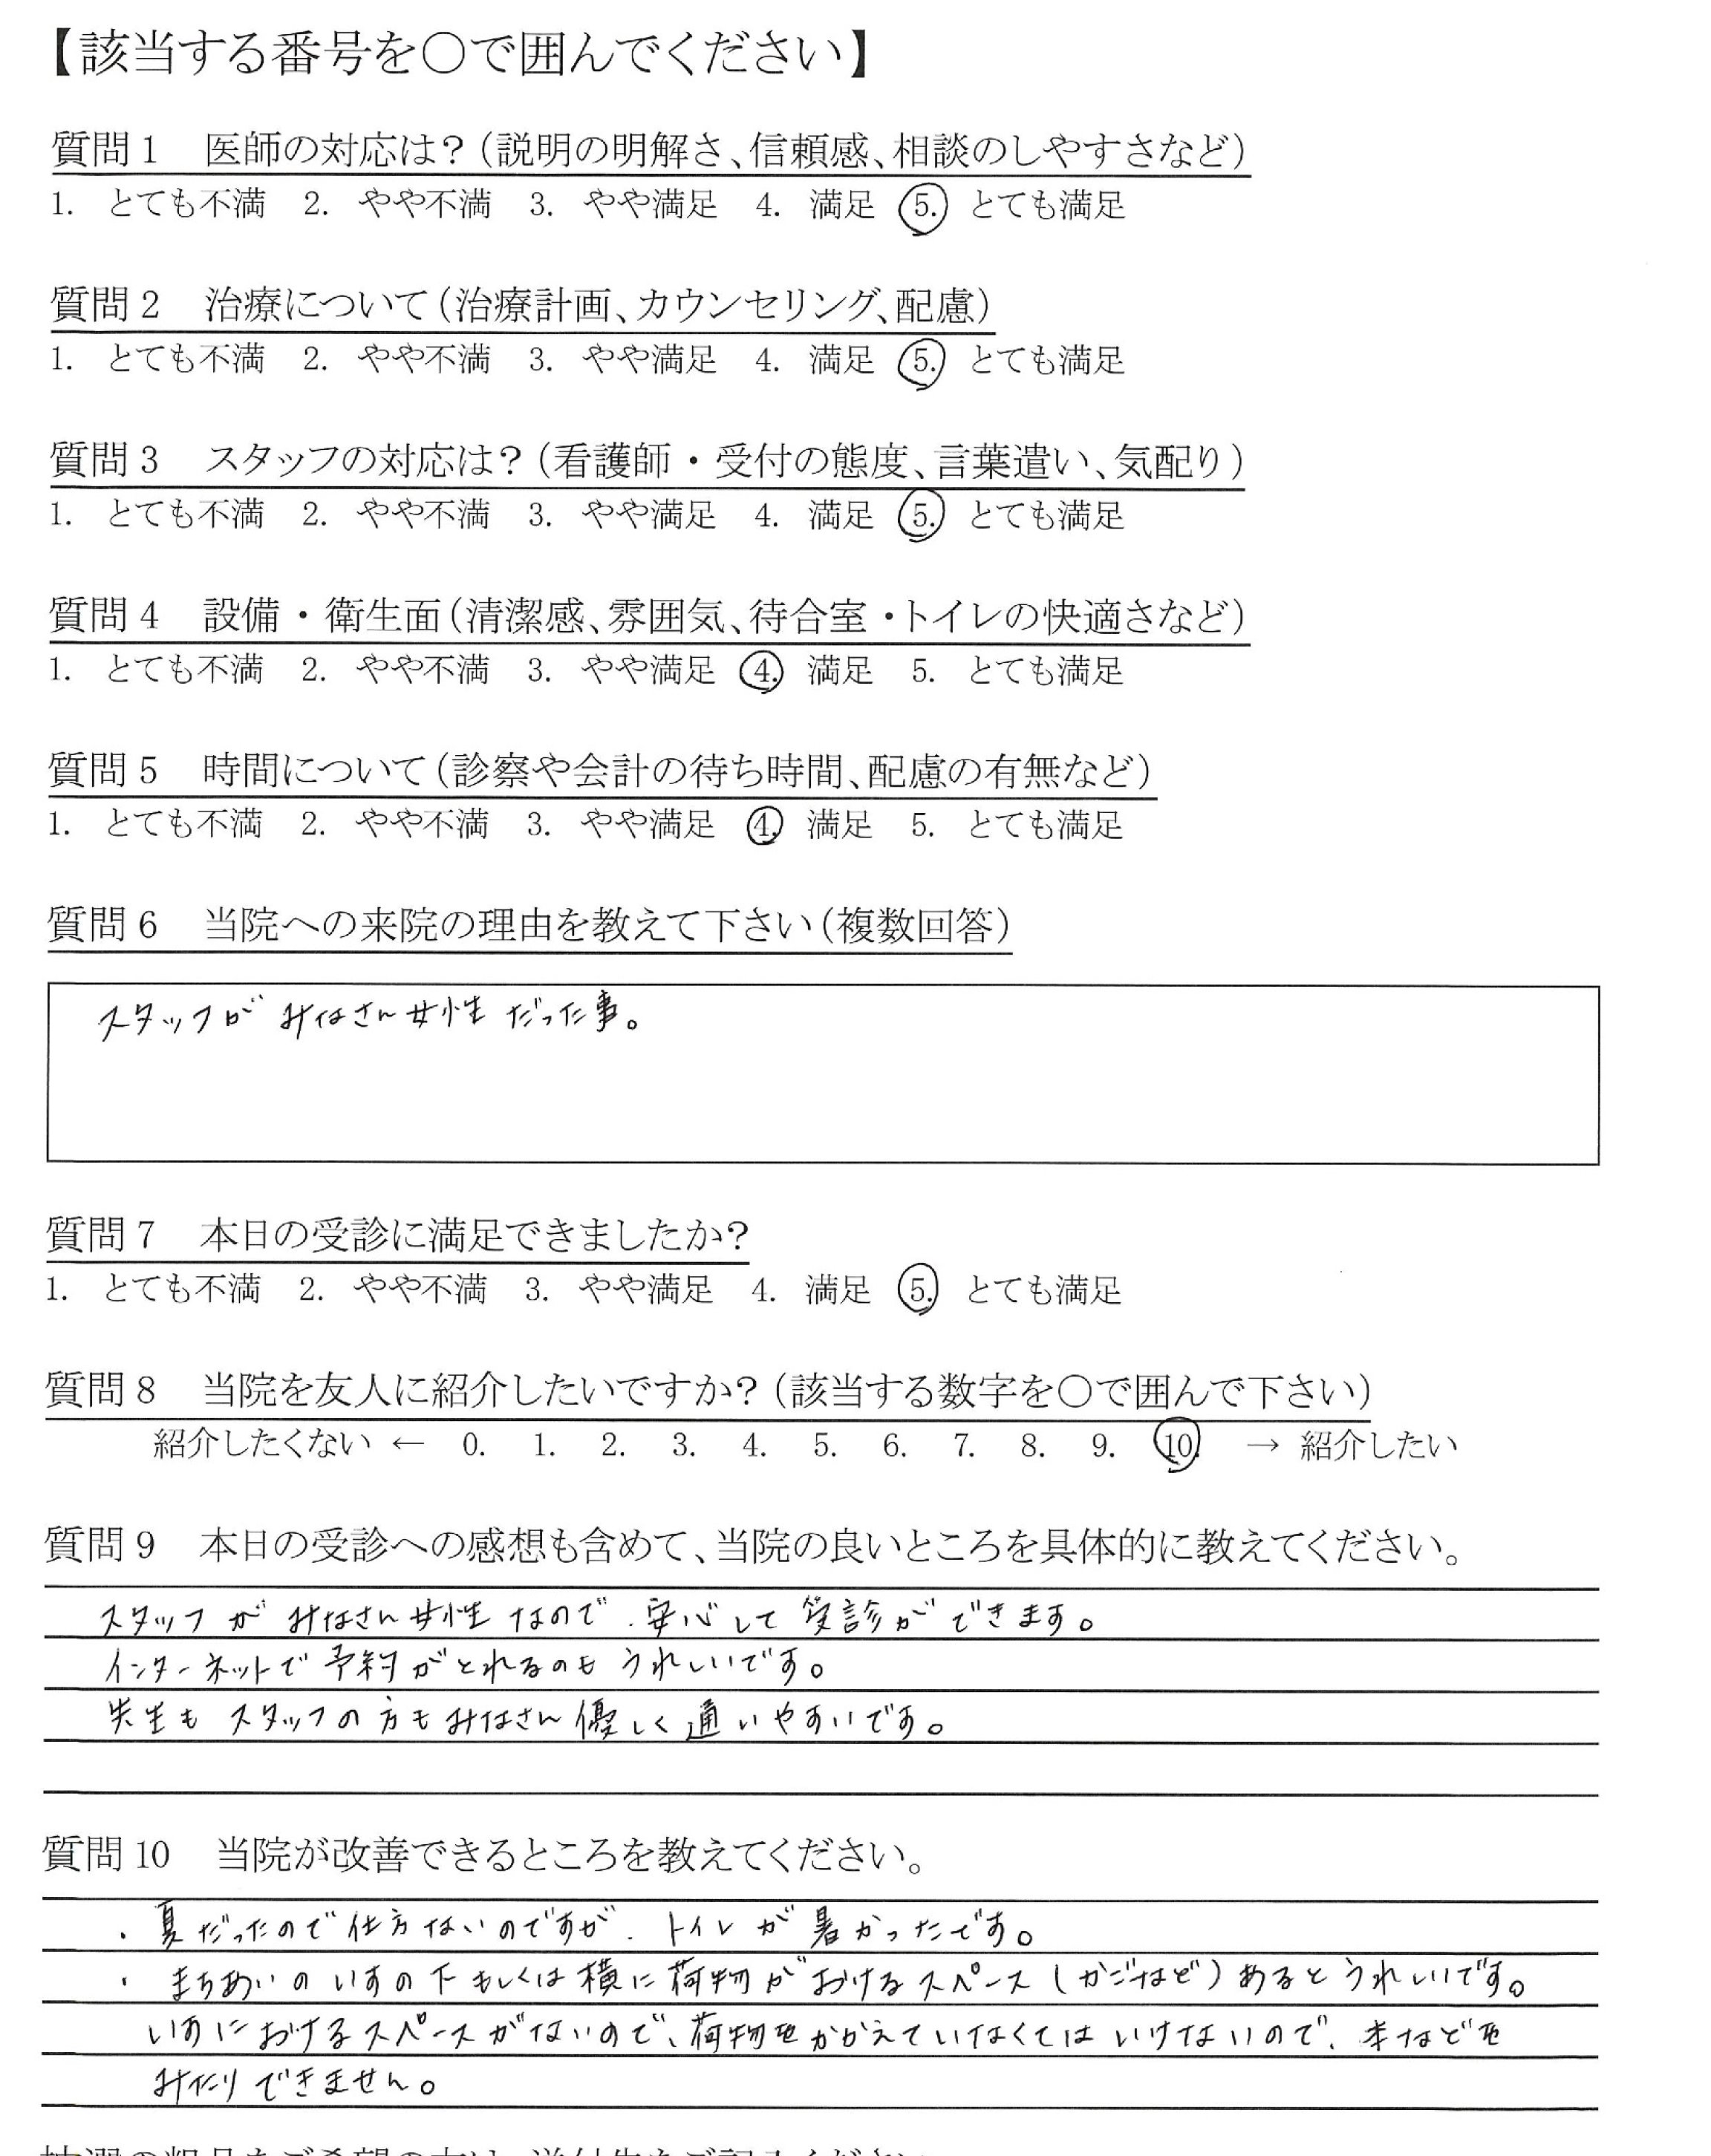 【該当する番号を○で囲んでください】
質問1　医師の対応は？（説明の明解さ、信頼感、相談のしやすさなど）
1.　とても不満　2.　やや不満　3.　やや満足　4.　満足　5.　とても満足
質問2　治療について（治療計画、カウンセリング、配慮）
1.　とても不満　2.　やや不満　3.　やや満足　4.　満足　5.　とても満足
質問3　スタッフの対応は？（看護師・受付の態度、言葉遣い、気配り）
1.　とても不満　2.　やや不満　3.　やや満足　4.　満足　5.　とても満足
質問4　設備・衛生面（清潔感、雰囲気、待合室・トイレの快適さなど）
1.　とても不満　2.　やや不満　3.　やや満足　4.　満足　5.　とても満足
質問5　時間について（診察や会計の待ち時間、配慮の有無など）
1.　とても不満　2.　やや不満　3.　やや満足　4.　満足　5.　とても満足
質問6　当院への来院の理由を教えて下さい（複数回答）
スタッフが みなさん女性 だった事。
質問7　本日の受診に満足できましたか？
1.　とても不満　2.　やや不満　3.　やや満足　4.　満足　5.　とても満足
質問8　当院を友人に紹介したいですか？（該当する数字を○で囲んで下さい）
紹介したくない ← 0. 1. 2. 3. 4. 5. 6. 7. 8. 9. 10. → 紹介したい
質問9　本日の受診への感想も含めて、当院の良いところを具体的に教えてください。
スタッフが みなさん女性 なので、安心して 受診が できます。
インターネットで 予約がとれるのも うれしいです。
先生も スタッフの 方も みなさん 優しく 通いやすいです。
質問10　当院が改善できるところを教えてください。
・夏だったので 仕方ないのですが、トイレが 暑かったです。
・まちあいの いすの下 もしくは 横に 荷物が おけるスペース（かごなど）あると うれしいです。
いすに おけるスペースがないので、荷物を かかえていなくては いけないので、本などを
みたり できません。